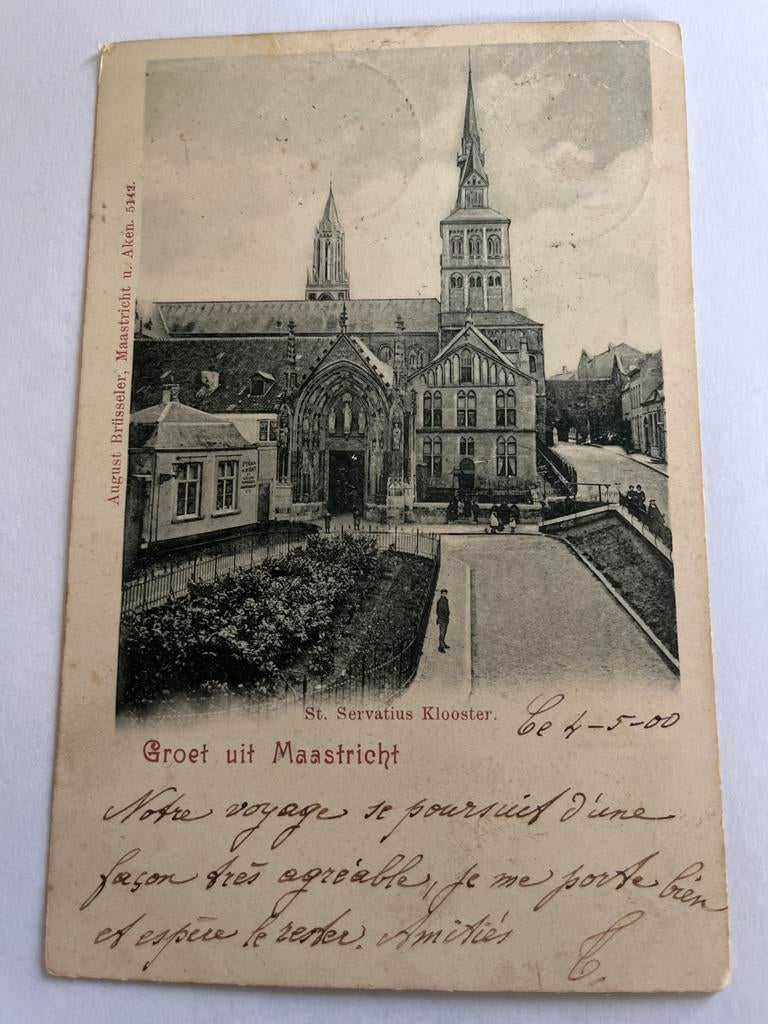 August Brüsseler, Maastricht u. Aken. 5142.
St. Servatius Klooster.
Ce 4-5-00
Groet uit Maastricht
Notre voyage se poursuit d'une
façon très agréable, je me porte bien
et espère le rester. Amitiés